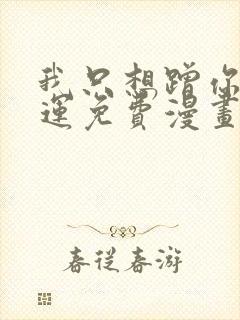 我只想蹭你
運免費漫畫
春從春游